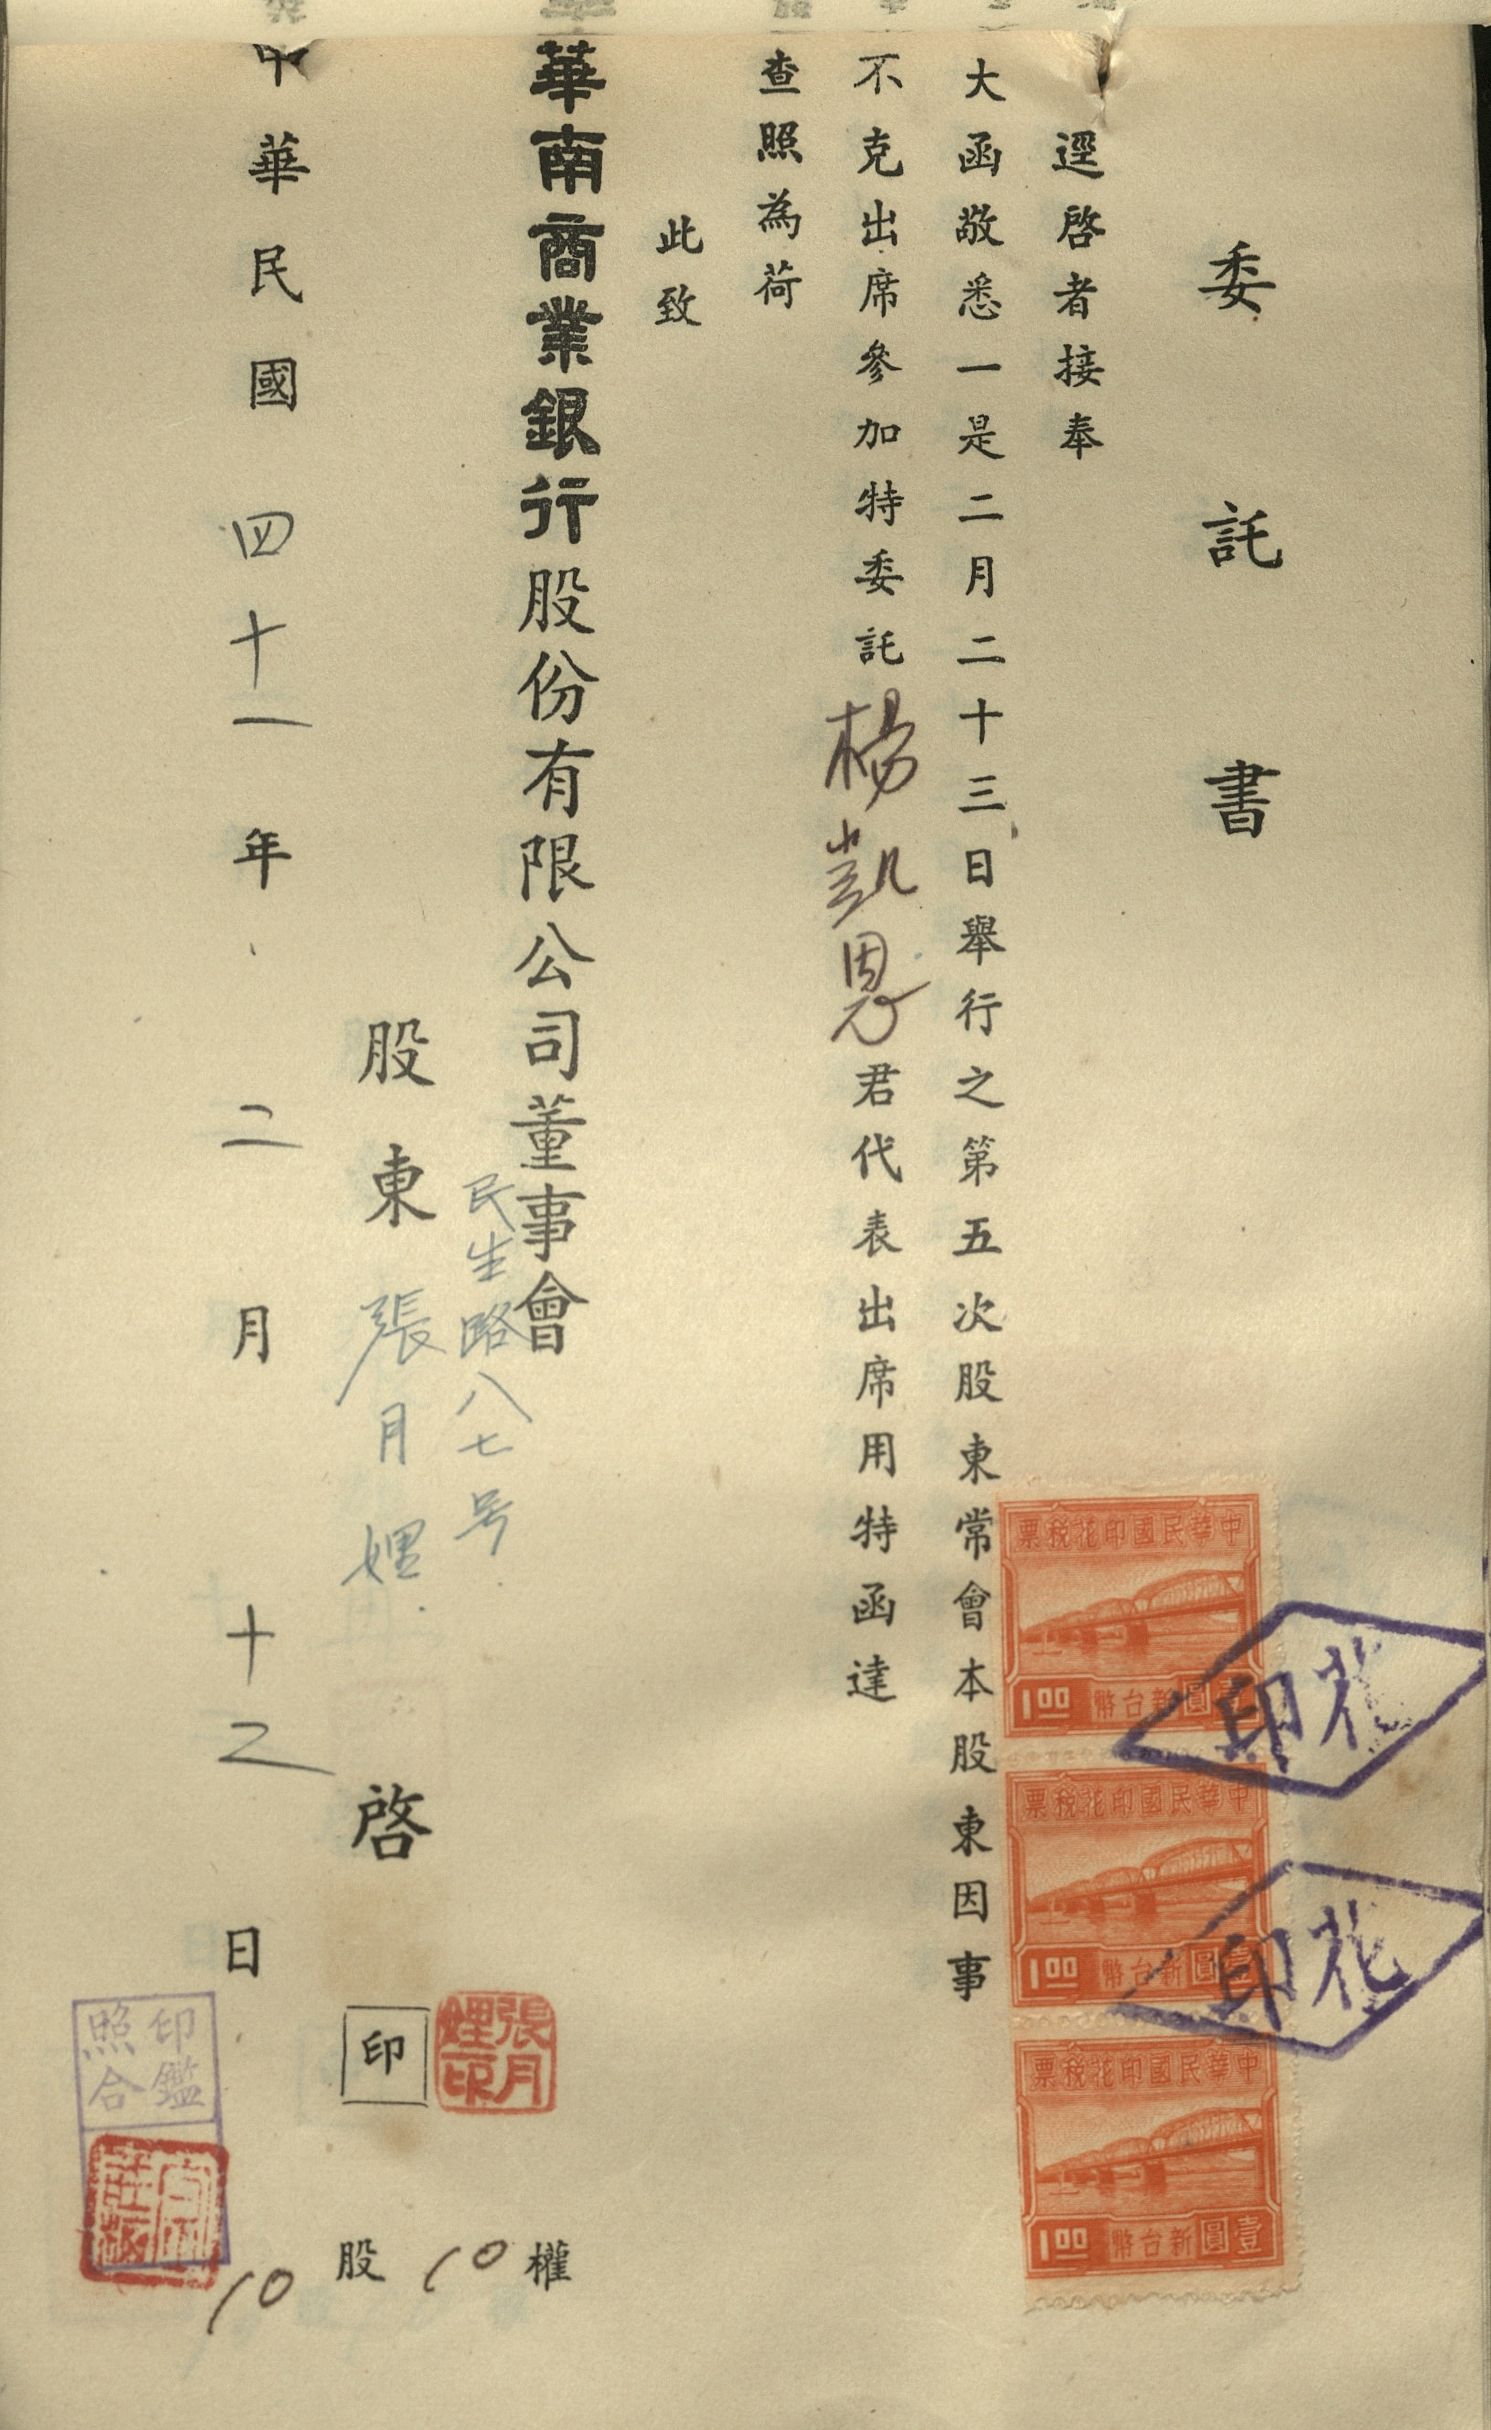 委託書
逕啓者接奉
大函敬悉一是二月二十三日舉行之第五次股東常會本股東因事
不克出席參加特委託楊凱恩君代表出席用特函達
查照為荷
此致
華南商業銀行股份有限公司董事會
民生路八七号
股東張月娌啓
印
張月娌印
中華民國四十一年二月十乙日
10股10權
印鑑照合
中華民國印花稅票
壹圓新台幣
1.00
中華民國印花稅票
壹圓新台幣
1.00
中華民國印花稅票
壹圓新台幣
1.00
花印
花印